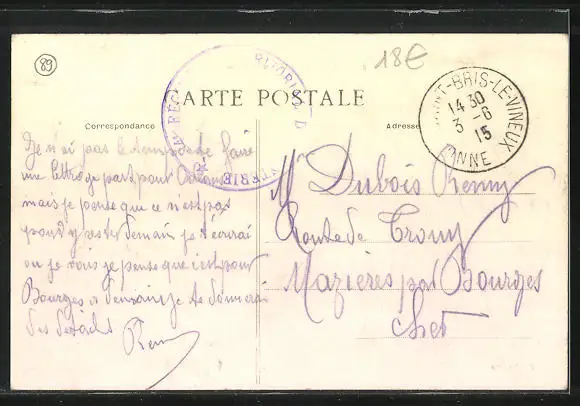 89
18€
CARTE POSTALE
Correspondance
Adresse
INT-BRIS-LE-VINEUX
14 30
3 - 6
15
YONNE
Je n'ai pas le temps de faire
une lettre je part pour
mais je pense que ce n'est pas
pour y rester demain je t'écrirai
ou je vais je pense que c'est pour
Bourges demain je te donnerai
des détails
Remy
Mr Dubois Remy
Route de Crosny
Mazières par Bourges
Cher